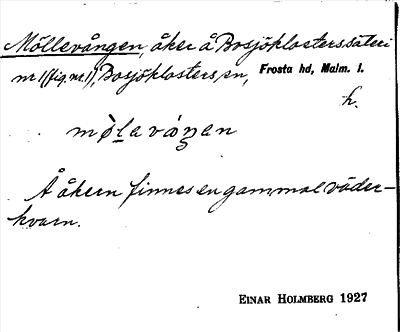 Möllevången, åker å Bosjöklosters säteri
nr 1 (fig. nr. 1), Bosjöklosters sn, Frosta hd, Malm. l.
h.
Å åkern finnes en gammal väder-
kvarn.
EINAR HOLMBERG 1927